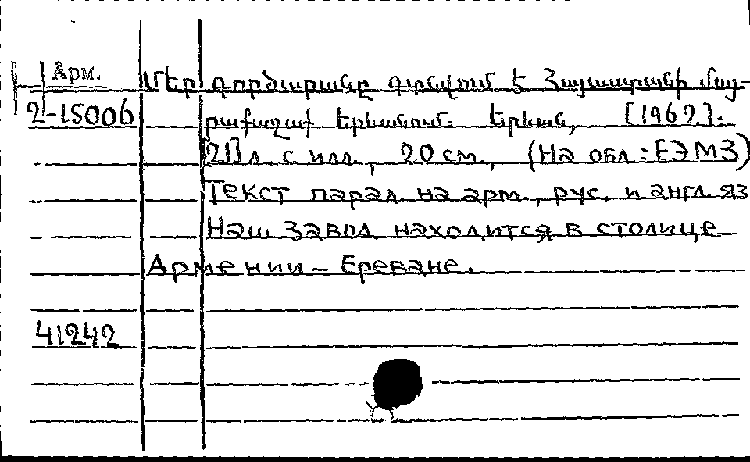 Арм.
2-15006
Մեր գործարանը գտնվում է Հայաստանի մայ-
րաքաղաք Երևանում. Երևան, [1967].
[21] л. с илл., 20 см., (На обл: ЕЭМЗ)
Текст парал. на арм., рус. и англ. яз
Наш завод находится в столице
Армении – Ереване.
41242